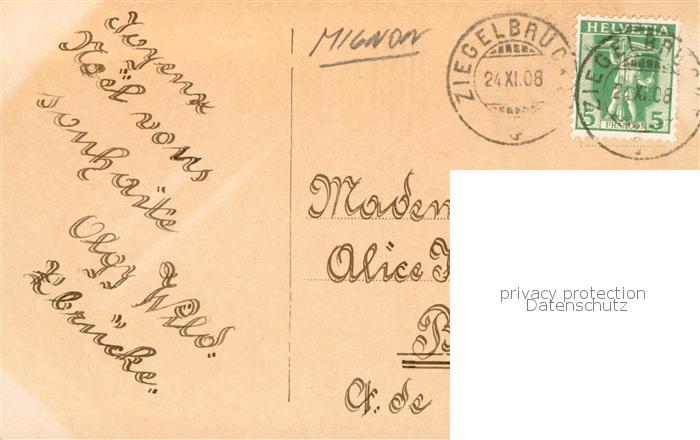 Joyeux
Noël vous
souhaite
Olga Wild
Zbrücke.
MIGNON
ZIEGELBRÜCKE
24 XI. 08
HELVETIA
5 FRANCO 5
ZIEGELBRÜ
24 XI. 08
Madem
Alice
B
Ct. de
privacy protection
Datenschutz